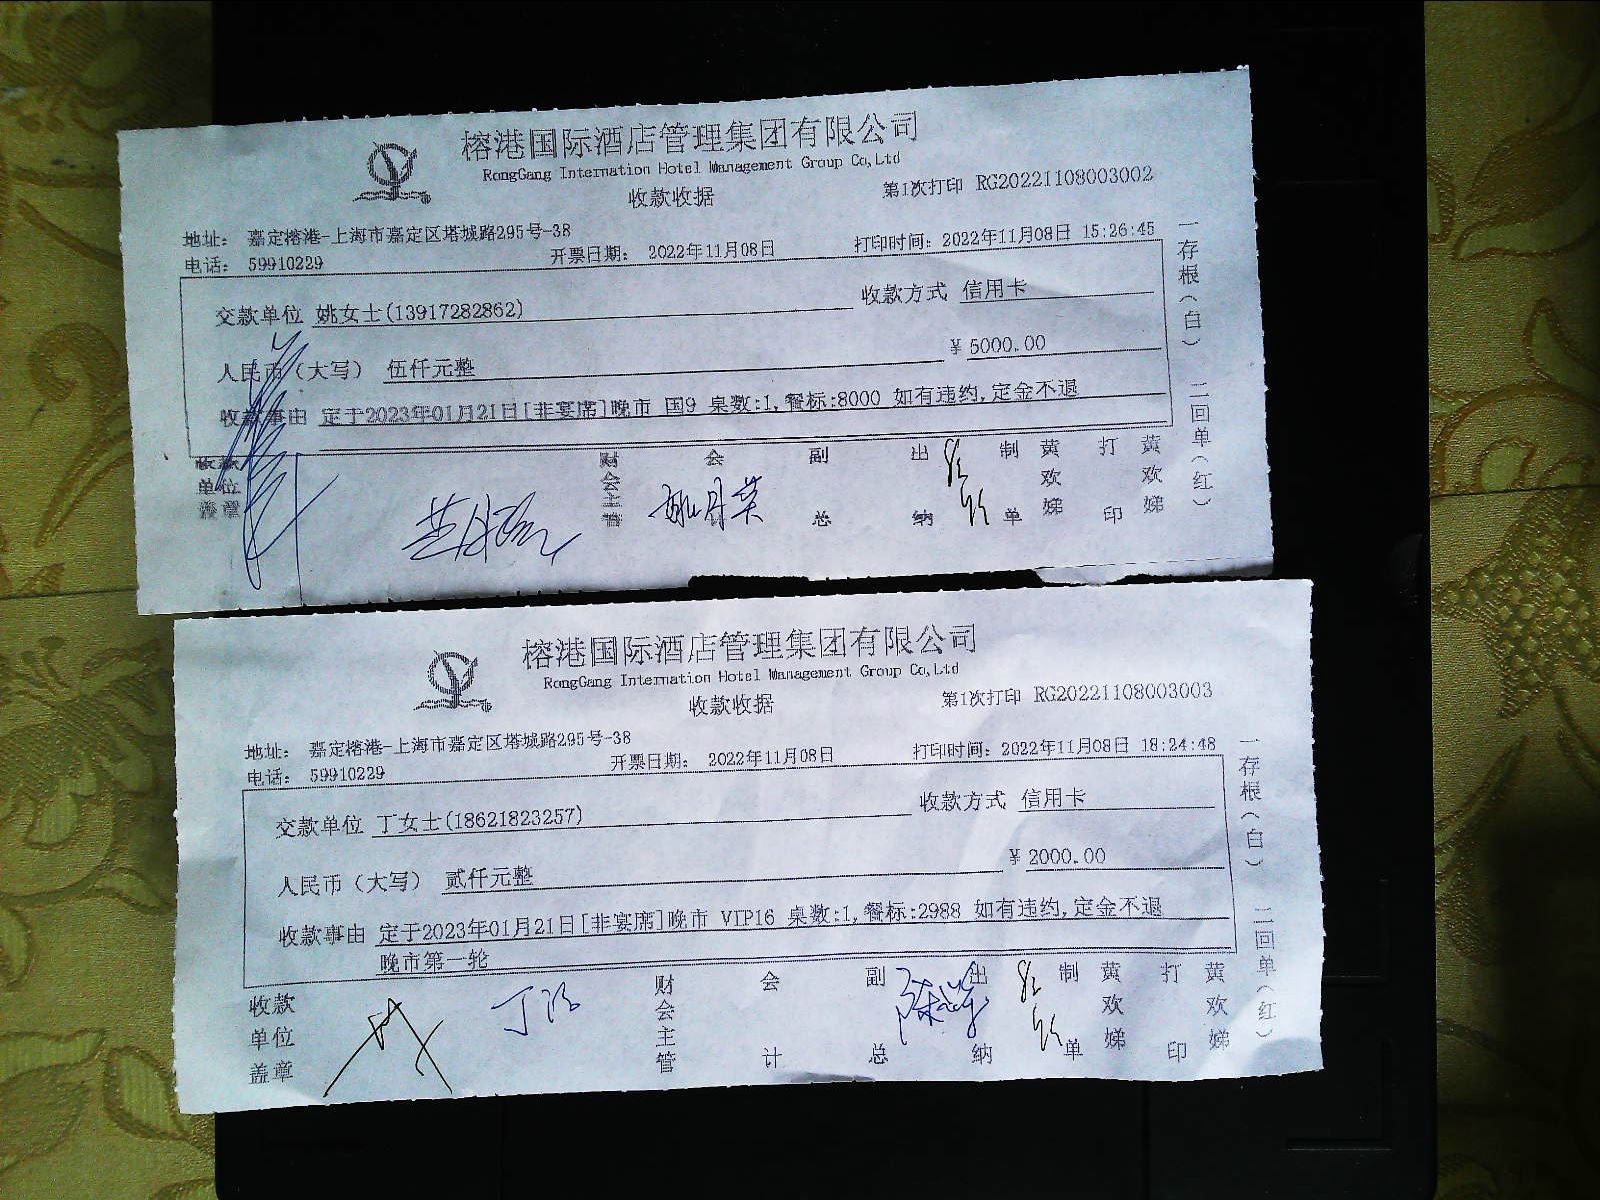 榕港国际酒店管理集团有限公司
RongGang Internation Hotel Management Group Co,Ltd
收款收据
第1次打印 RG20221108003002
地址： 嘉定榕港-上海市嘉定区塔城路295号-38
电话： 59910229
开票日期： 2022年11月08日
打印时间：2022年11月08日 15:26:45
交款单位 姚女士(13917282862)
收款方式 信用卡
人民币（大写） 伍仟元整
¥ 5000.00
收款事由 定于2023年01月21日[非宴席]晚市 国9 桌数:1,餐标:8000 如有违约,定金不退
收款单位盖章
财会主管
会
副总
出纳
制单
黄欢娣
打印
黄欢娣
一存根（白） 二回单（红）
榕港国际酒店管理集团有限公司
RongGang Internation Hotel Management Group Co,Ltd
收款收据
第1次打印 RG20221108003003
地址： 嘉定榕港-上海市嘉定区塔城路295号-38
电话： 59910229
开票日期： 2022年11月08日
打印时间：2022年11月08日 18:24:48
交款单位 丁女士(18621823257)
收款方式 信用卡
人民币（大写） 贰仟元整
¥ 2000.00
收款事由 定于2023年01月21日[非宴席]晚市 VIP16 桌数:1,餐标:2988 如有违约,定金不退
晚市第一轮
收款单位盖章
财会主管
会计
副总
出纳
制单
黄欢娣
打印
黄欢娣
一存根（白） 二回单（红）